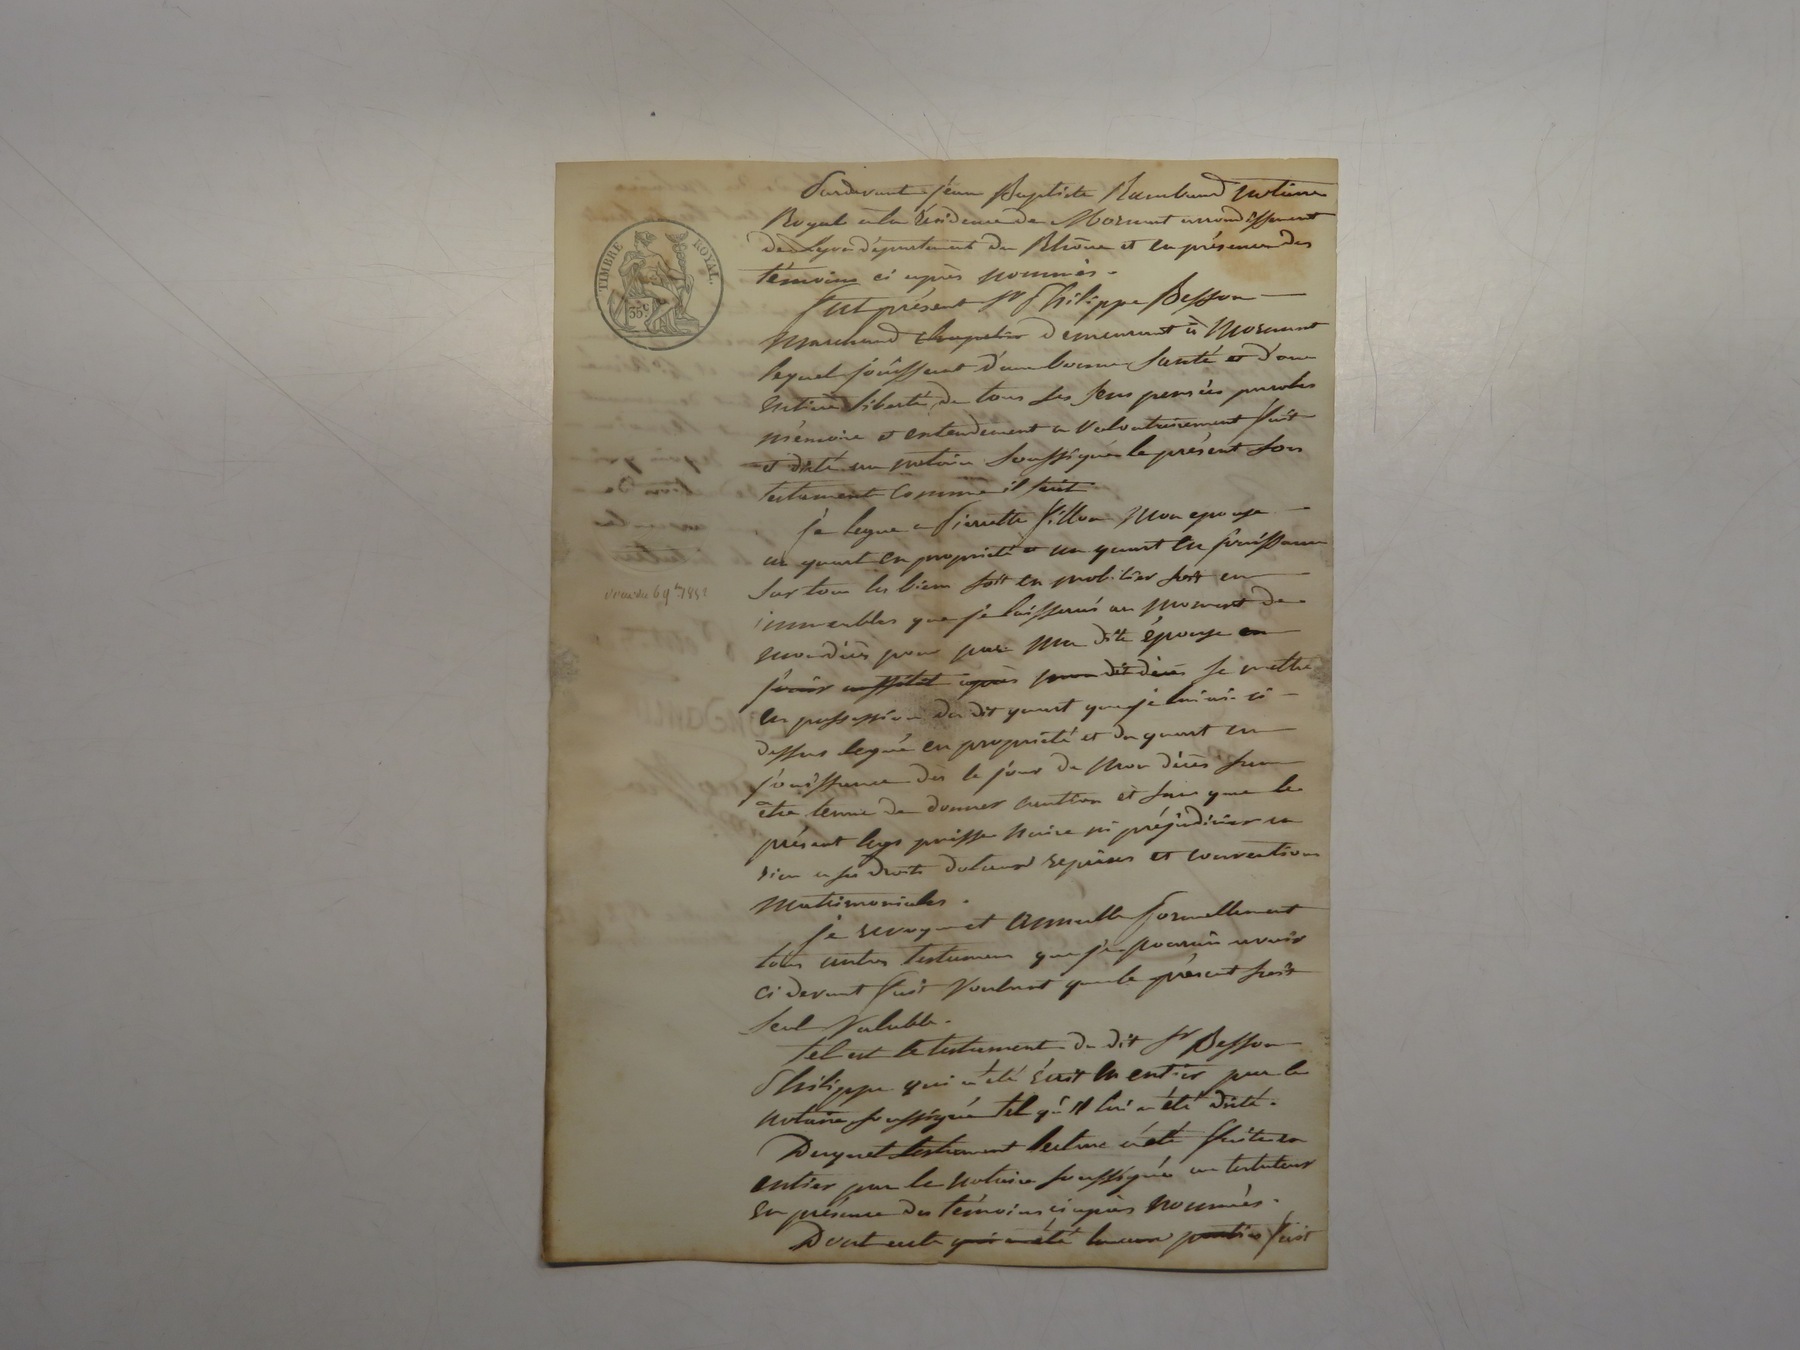 TIMBRE ROYAL.
35c
Pardevant Jean Baptiste Rambaud Notaire
Royal à la résidence de Mornant arrondissement
de Lyon département du Rhône et en présence des
témoins ci après nommés.
Fut présent Sr Philippe Besson
Marchand Chapelier demeurant à Mornant
lequel jouissant d'une bonne Santé et d'une
entière liberté de tous ses sens pensées paroles
mémoire et entendement a Volontairement fait
et dicté au notaire Soussigné le présent Son
testament Comme il suit
Je legue a Pierrette Fillon Mon epouse
un quart en propriété et un quart en jouissance
Sur tous les biens soit en mobilier soit en
immeubles que je laisserai au moment de
mon décès pour par Ma dite épouse en
jouir aussitôt après mon dit décès se mettre
en possession du dit quart que je lui ai ci
dessus legué en propriété et du quart en
jouissance dès le jour de Mon décès sans
être tenue de donner caution et sans que le
présent legs puisse Nuire ni préjudicier en
rien a ses droits dotaux reprises et conventions
Matrimoniales.
je revoque et Annulle formellement
tous autres testamens que je pourrais avoir
Ci devant fait Voulant que le présent soit
Seul Valable.
Tel est le testament du dit Sr Besson
Philippe qui a été écrit en entier par le
notaire soussigné tel qu'il lui a été dicté.
Duquel testament lecture a été faite en
entier par le notaire soussigné au testateur
En présence des témoins ci après nommés.
Dont acte qui a été lu aux parties fait